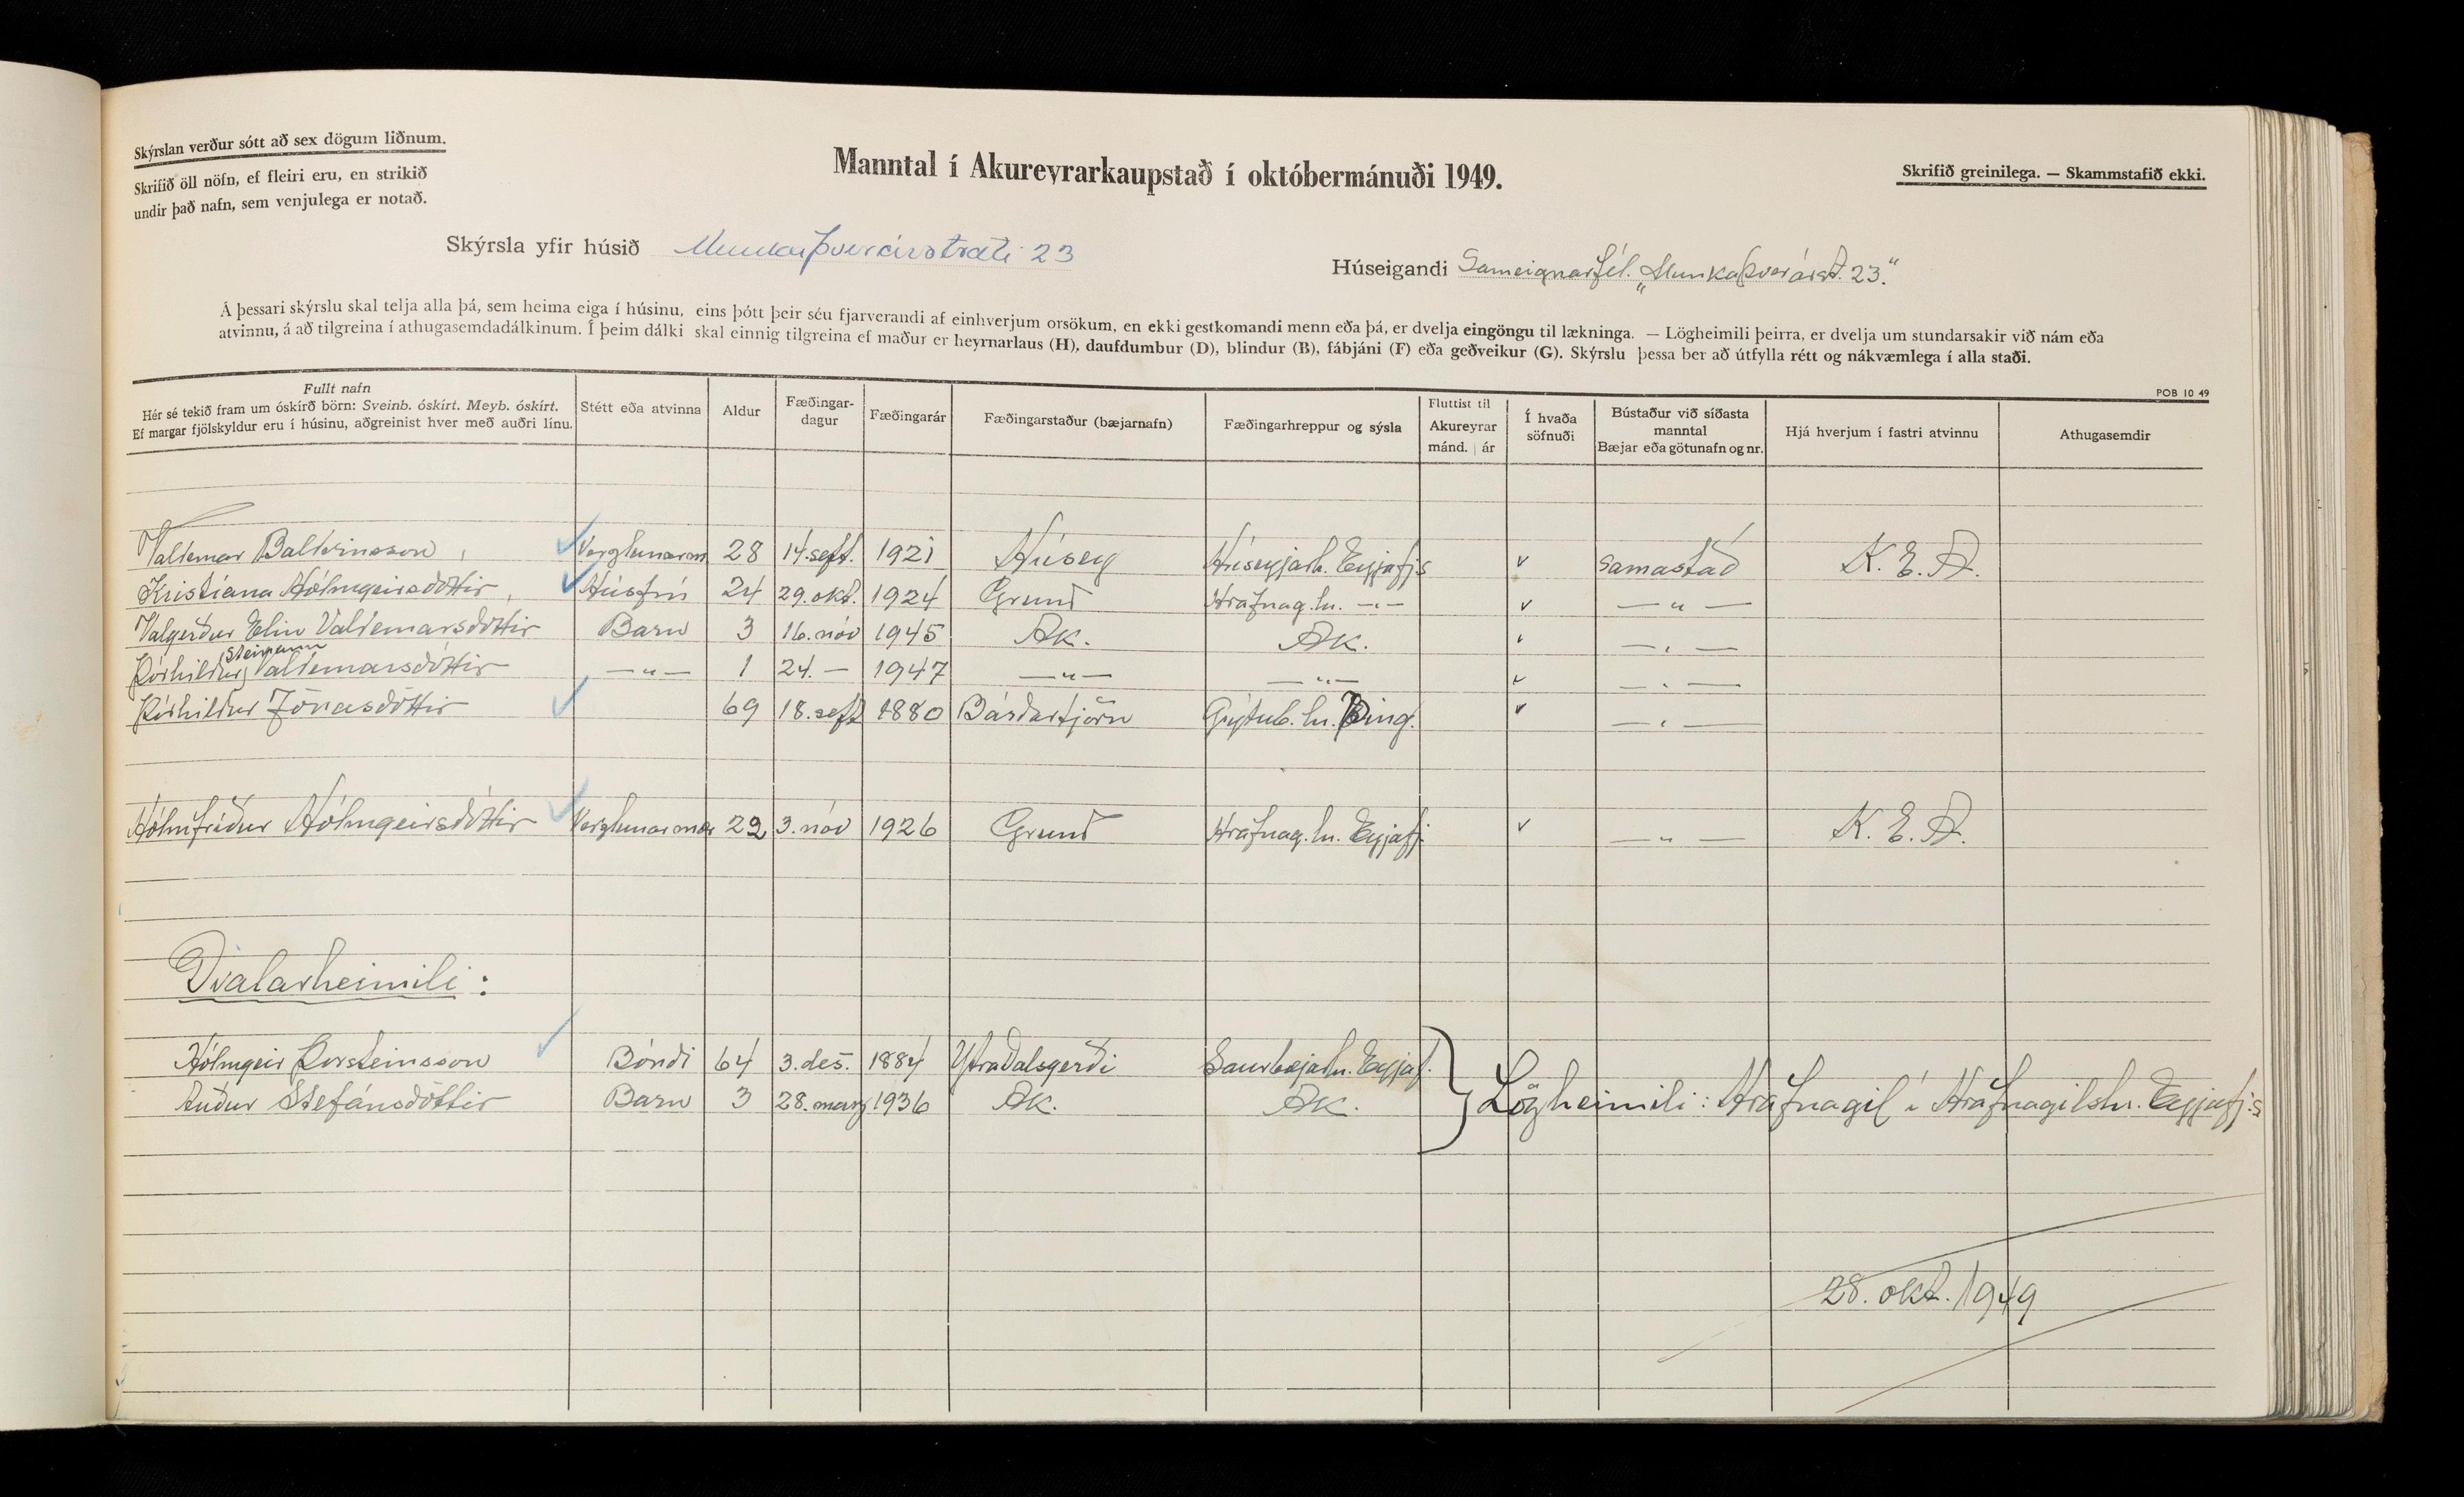 Skýrslan verður sótt að sex dögum liðnum.
Skrifið öll nöfn, ef fleiri eru, en strikið
undir það nafn, sem venjulega er notað.
Manntal í Akureyrarkaupstað í októbermánuði 1949.
Skrifið greinilega. — Skammstafið ekki.
Skýrsla yfir húsið Munkaþverárstræti 23
Húseigandi Sameignarfél. „Munkaþverárst. 23."
Á þessari skýrslu skal telja alla þá, sem heima eiga í húsinu, eins þótt þeir séu fjarverandi af einhverjum orsökum, en ekki gestkomandi menn eða þá, er dvelja eingöngu til lækninga. — Lögheimili þeirra, er dvelja um stundarsakir við nám eða
atvinnu, á að tilgreina í athugasemdadálkinum. Í þeim dálki skal einnig tilgreina ef maður er heyrnarlaus (H), daufdumbur (D), blindur (B), fábjáni (F) eða geðveikur (G). Skýrslu þessa ber að útfylla rétt og nákvæmlega í alla staði.
POB 10 49
Fullt nafn
Hér sé tekið fram um óskírð börn: Sveinb. óskírt. Meyb. óskírt.
Ef margar fjölskyldur eru í húsinu, aðgreinist hver með auðri línu.
Stétt eða atvinna
Aldur
Fæðingar-
dagur
Fæðingarár
Fæðingarstaður (bæjarnafn)
Fæðingarhreppur og sýsla
Fluttist til
Akureyrar
mánd. | ár
Í hvaða
söfnuði
Bústaður við síðasta
manntal
Bæjar eða götunafn og nr.
Hjá hverjum í fastri atvinnu
Athugasemdir
Valdemar Baldvinsson Verzlunarm 28 14. sept. 1921 Húsey Húseyjarh. Eyjafjs v samastað K. E. A.
Kristíana Hólmgeirsdóttir Húsfrú 24 29. okt. 1924 Grund Hrafnag.hr. —„— v —„—
Valgerður Elín Valdemarsdóttir Barn 3 16. nóv 1945 Ak. Ak. v —„—
Steinunn
Þórhildur Valdemarsdóttir —„— 1 24. — 1947 —„— —„— v —„—
Þórhildur Jónasdóttir 69 18. sept 1880 Bárðartjörn Grýtub. hr. Þing. v —„—
Hólmfríður Hólmgeirsdóttir Verzlunarmær 22 3. nóv 1926 Grund Hrafnag. hr. Eyjafj. v —„— K. E. A.
Dvalarheimili:
Hólmgeir Þorsteinsson Bóndi 64 3. des. 1884 Ytradalsgerði Saurbæjarhr. Eyjaf.
Auður Stefánsdóttir Barn 3 28. marz 1936 Ak. Ak.
Lögheimili: Hrafnagil í Hrafnagilshr. Eyjafj.s
28. okt. 1949